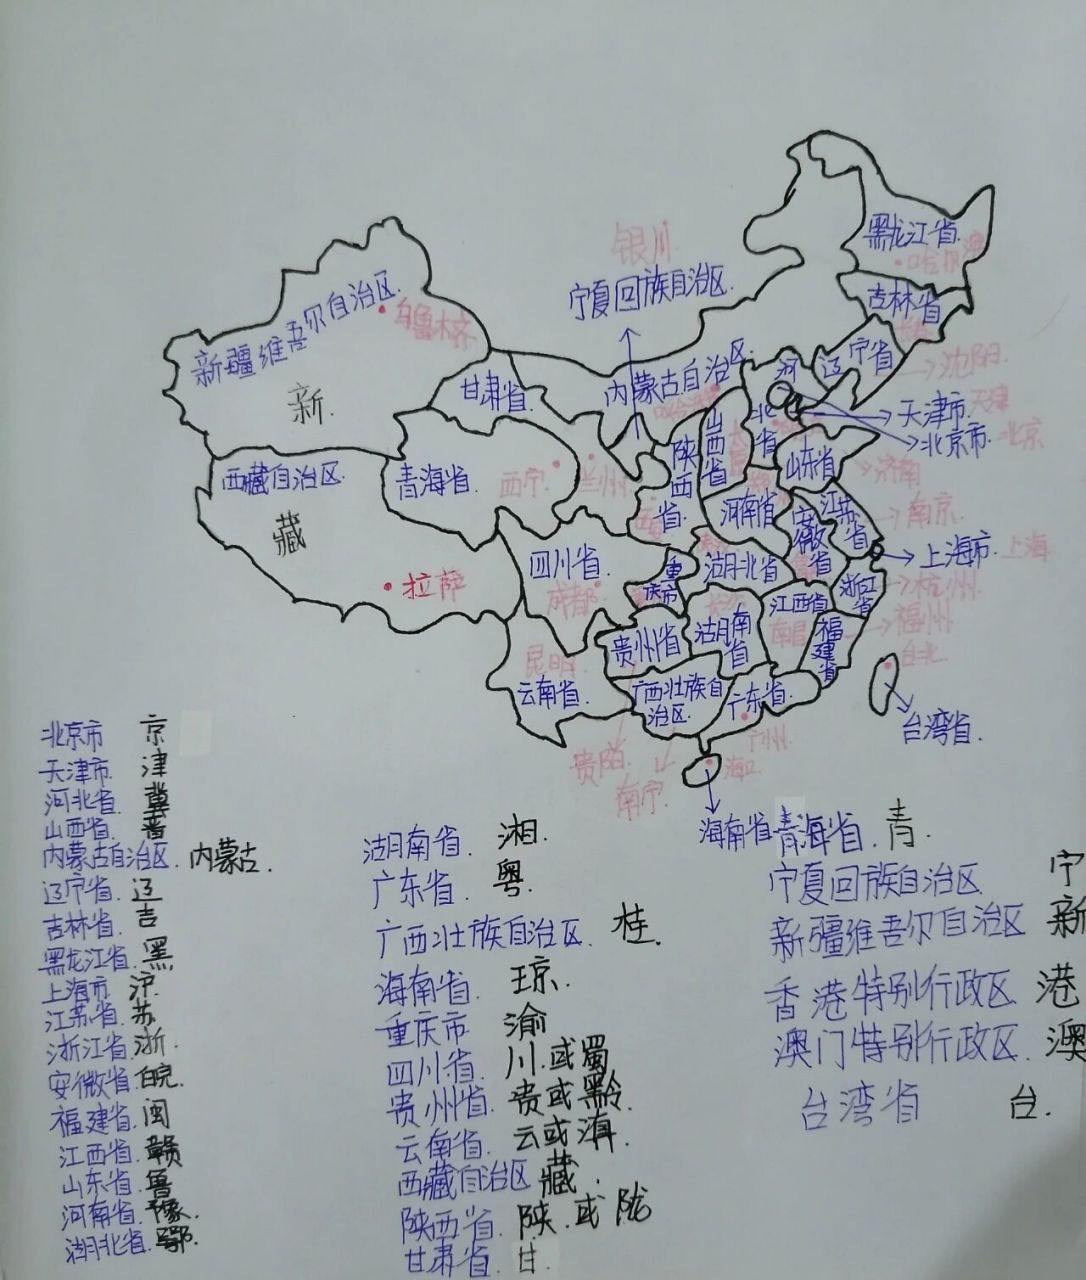 黑龙江省.
哈尔滨
银川
宁夏回族自治区.
吉林省
新疆维吾尔自治区.
乌鲁木齐
新.
辽宁省
沈阳
甘肃省.
内蒙古自治区.
河北省
天津市.
天津
北京市.
北京
西藏自治区.
青海省.
西宁.
兰州.
陕西省.
山西省
山东省
济南
藏
河南省
江苏省
南京
安徽省
上海市.
上海
四川省.
成都
重庆市
湖北省
拉萨
浙江省
杭州
江西省
南昌
福建省
福州
贵州省
湖南省
台北
昆明
云南省.
广西壮族自治区.
广东省.
广州.
台湾省.
贵阳
南宁
海口
海南省
北京市 京
天津市. 津
河北省. 冀
山西省. 晋
内蒙古自治区. 内蒙古.
辽宁省. 辽
吉林省. 吉
黑龙江省. 黑
上海市 沪.
江苏省. 苏
浙江省 浙.
安徽省. 皖.
福建省. 闽
江西省. 赣
山东省. 鲁
河南省. 豫.
湖北省. 鄂.
湖南省. 湘.
广东省. 粤.
广西壮族自治区. 桂.
海南省. 琼.
重庆市 渝
四川省. 川.或蜀
贵州省. 贵或黔.
云南省. 云或滇.
西藏自治区. 藏.
陕西省. 陕.或陇
甘肃省. 甘.
青海省. 青.
宁夏回族自治区 宁
新疆维吾尔自治区 新
香港特别行政区 港
澳门特别行政区. 澳
台湾省 台.